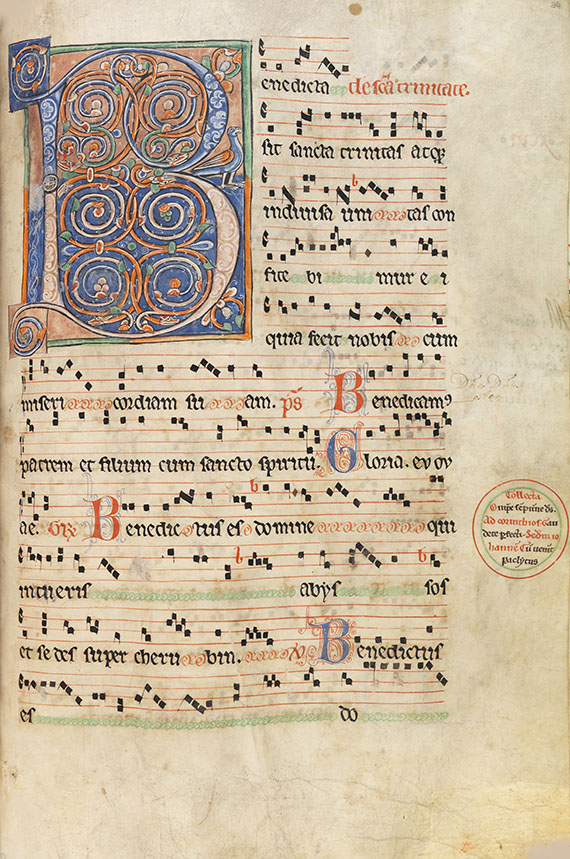 Benedicta de scā trinitate.
sit sancta trinitas atq;
indiuisa uni tas con
fite bi mur e i
quia fecit nobis cum
miseri cordiam su am. ps Benedicam9
patrem et filium cum sancto spiritu. Gloria. eu ou
ae. Gr Benedictus es domine qui
intueris abys sos
et sedes super cheru bin. V Benedictus
es do
Collecta
Omps sempitne ds.
Ad corinthios Gau
dete
hanne Cū uenit
paclitus